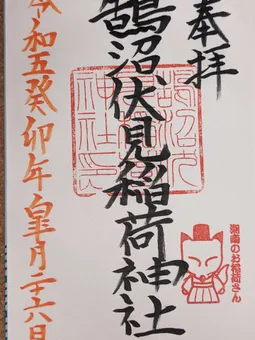 奉拝
鵠沼伏見稲荷神社
令和五癸卯年皐月二十六日
湘南のお稲荷さん